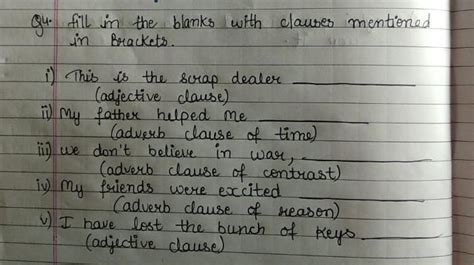 Q4. fill in the blanks with clauses mentioned
in Brackets.
i) This is the scrap dealer ____________
(adjective clause)
ii) My father helped me ____________
(adverb clause of time)
iii) we don't believe in war, ____________
(adverb clause of contrast)
iv) My friends were excited ____________
(adverb clause of reason)
v) I have lost the bunch of keys ________
(adjective clause)